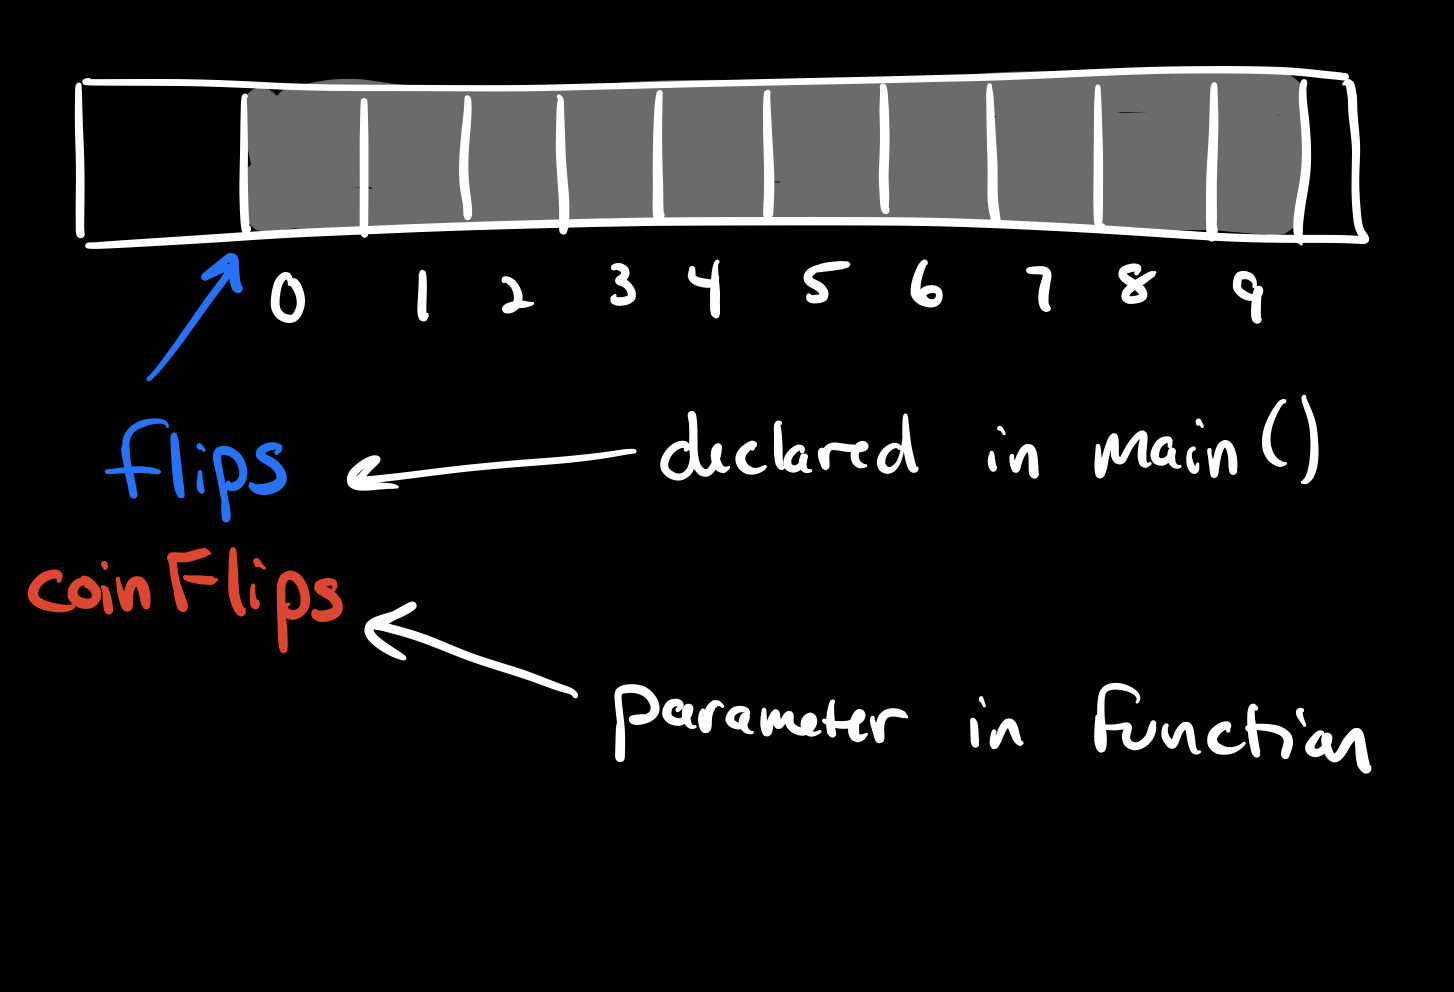 0 1 2 3 4 5 6 7 8 9
flips declared in main()
coinFlips
parameter in function